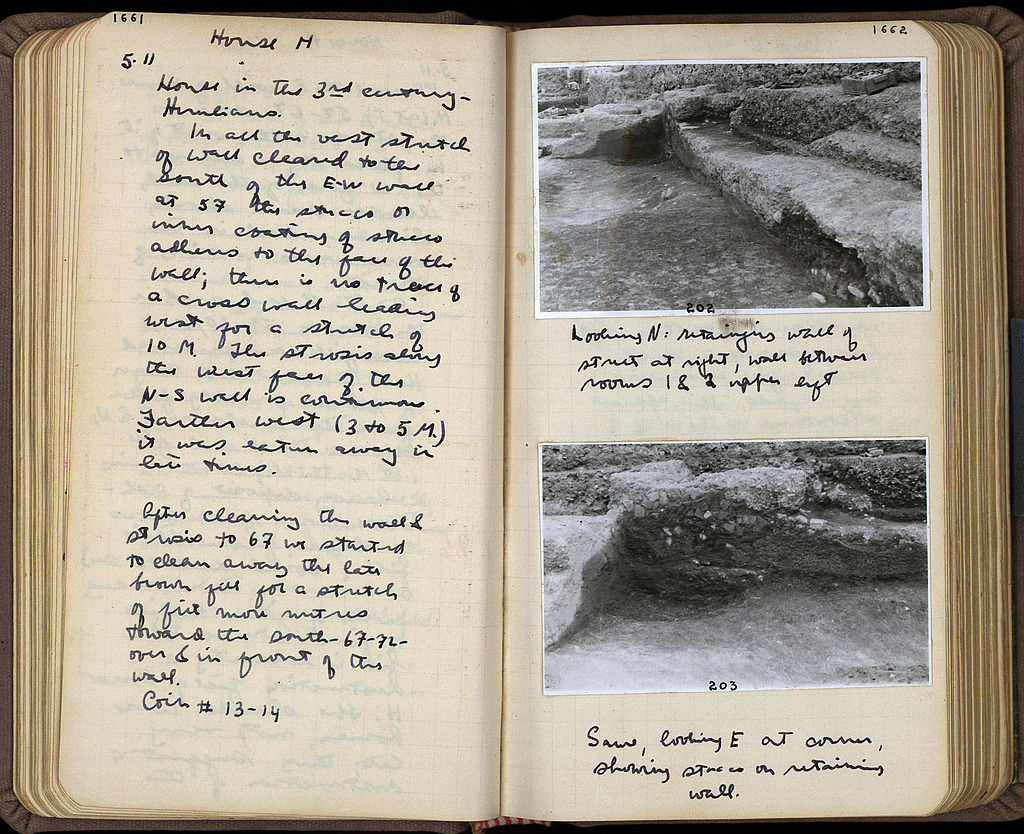 1661
House H
5.11
House in the 3rd century -
Herulians.
In all the vast stretch
of wall cleared to the
south of the E-W wall
at 57 the stucco or
inner coating of stucco
adheres to the face of the
wall; there is no trace of
a cross wall leading
west for a stretch of
10 M. The strosis along
the west face of the
N-S wall is continuous.
Farther west (3 to 5 M.)
it was eaten away in
late times.
After cleaning the wall &
strosis to 67 we started
to clean away the late
brown fill for a stretch
of five more metres
toward the south - 67-72 -
over & in front of the
wall.
Coin # 13-14
1662
202
Looking N: retaining wall of
street at right, wall between
rooms 1 & 2 upper left
203
Same, looking E at corner,
showing stucco on retaining
wall.